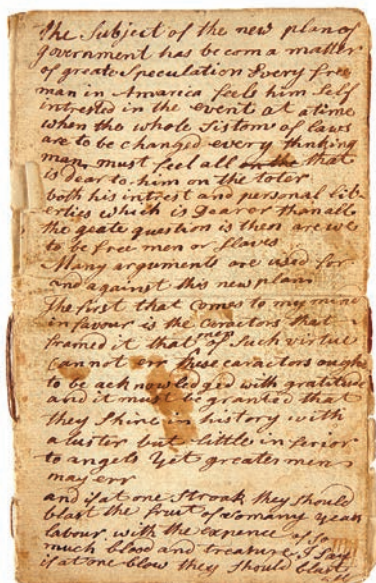 The Subject of the new plan of
government has be com a matter
of greate Speculation Every free
man in Amarica feels him Self
intrested in the event at a time
when the whole Sistom of laws
are to be changed every thinking
man must feel all on the that
is dear to him on the toter
both his intrest and personal lib-
erties which is Dearer than all
the geate question is then are we
to be free men or Slaves
Many arguments are used for
and against this new plan
The first that comes to my mind
in favour is the caractors that
framed it that men of Such virtue
cannot err these caractors ought
to be acknowledged with gratitude
and it must be granted that
they Shine in history with
a luster but little inferior
to angels yet greates men
may err
and if at one Stroak they should
blast the fruit of so many years
labour with the expence of so
much blood and treasure I say
if at one blow they should blast